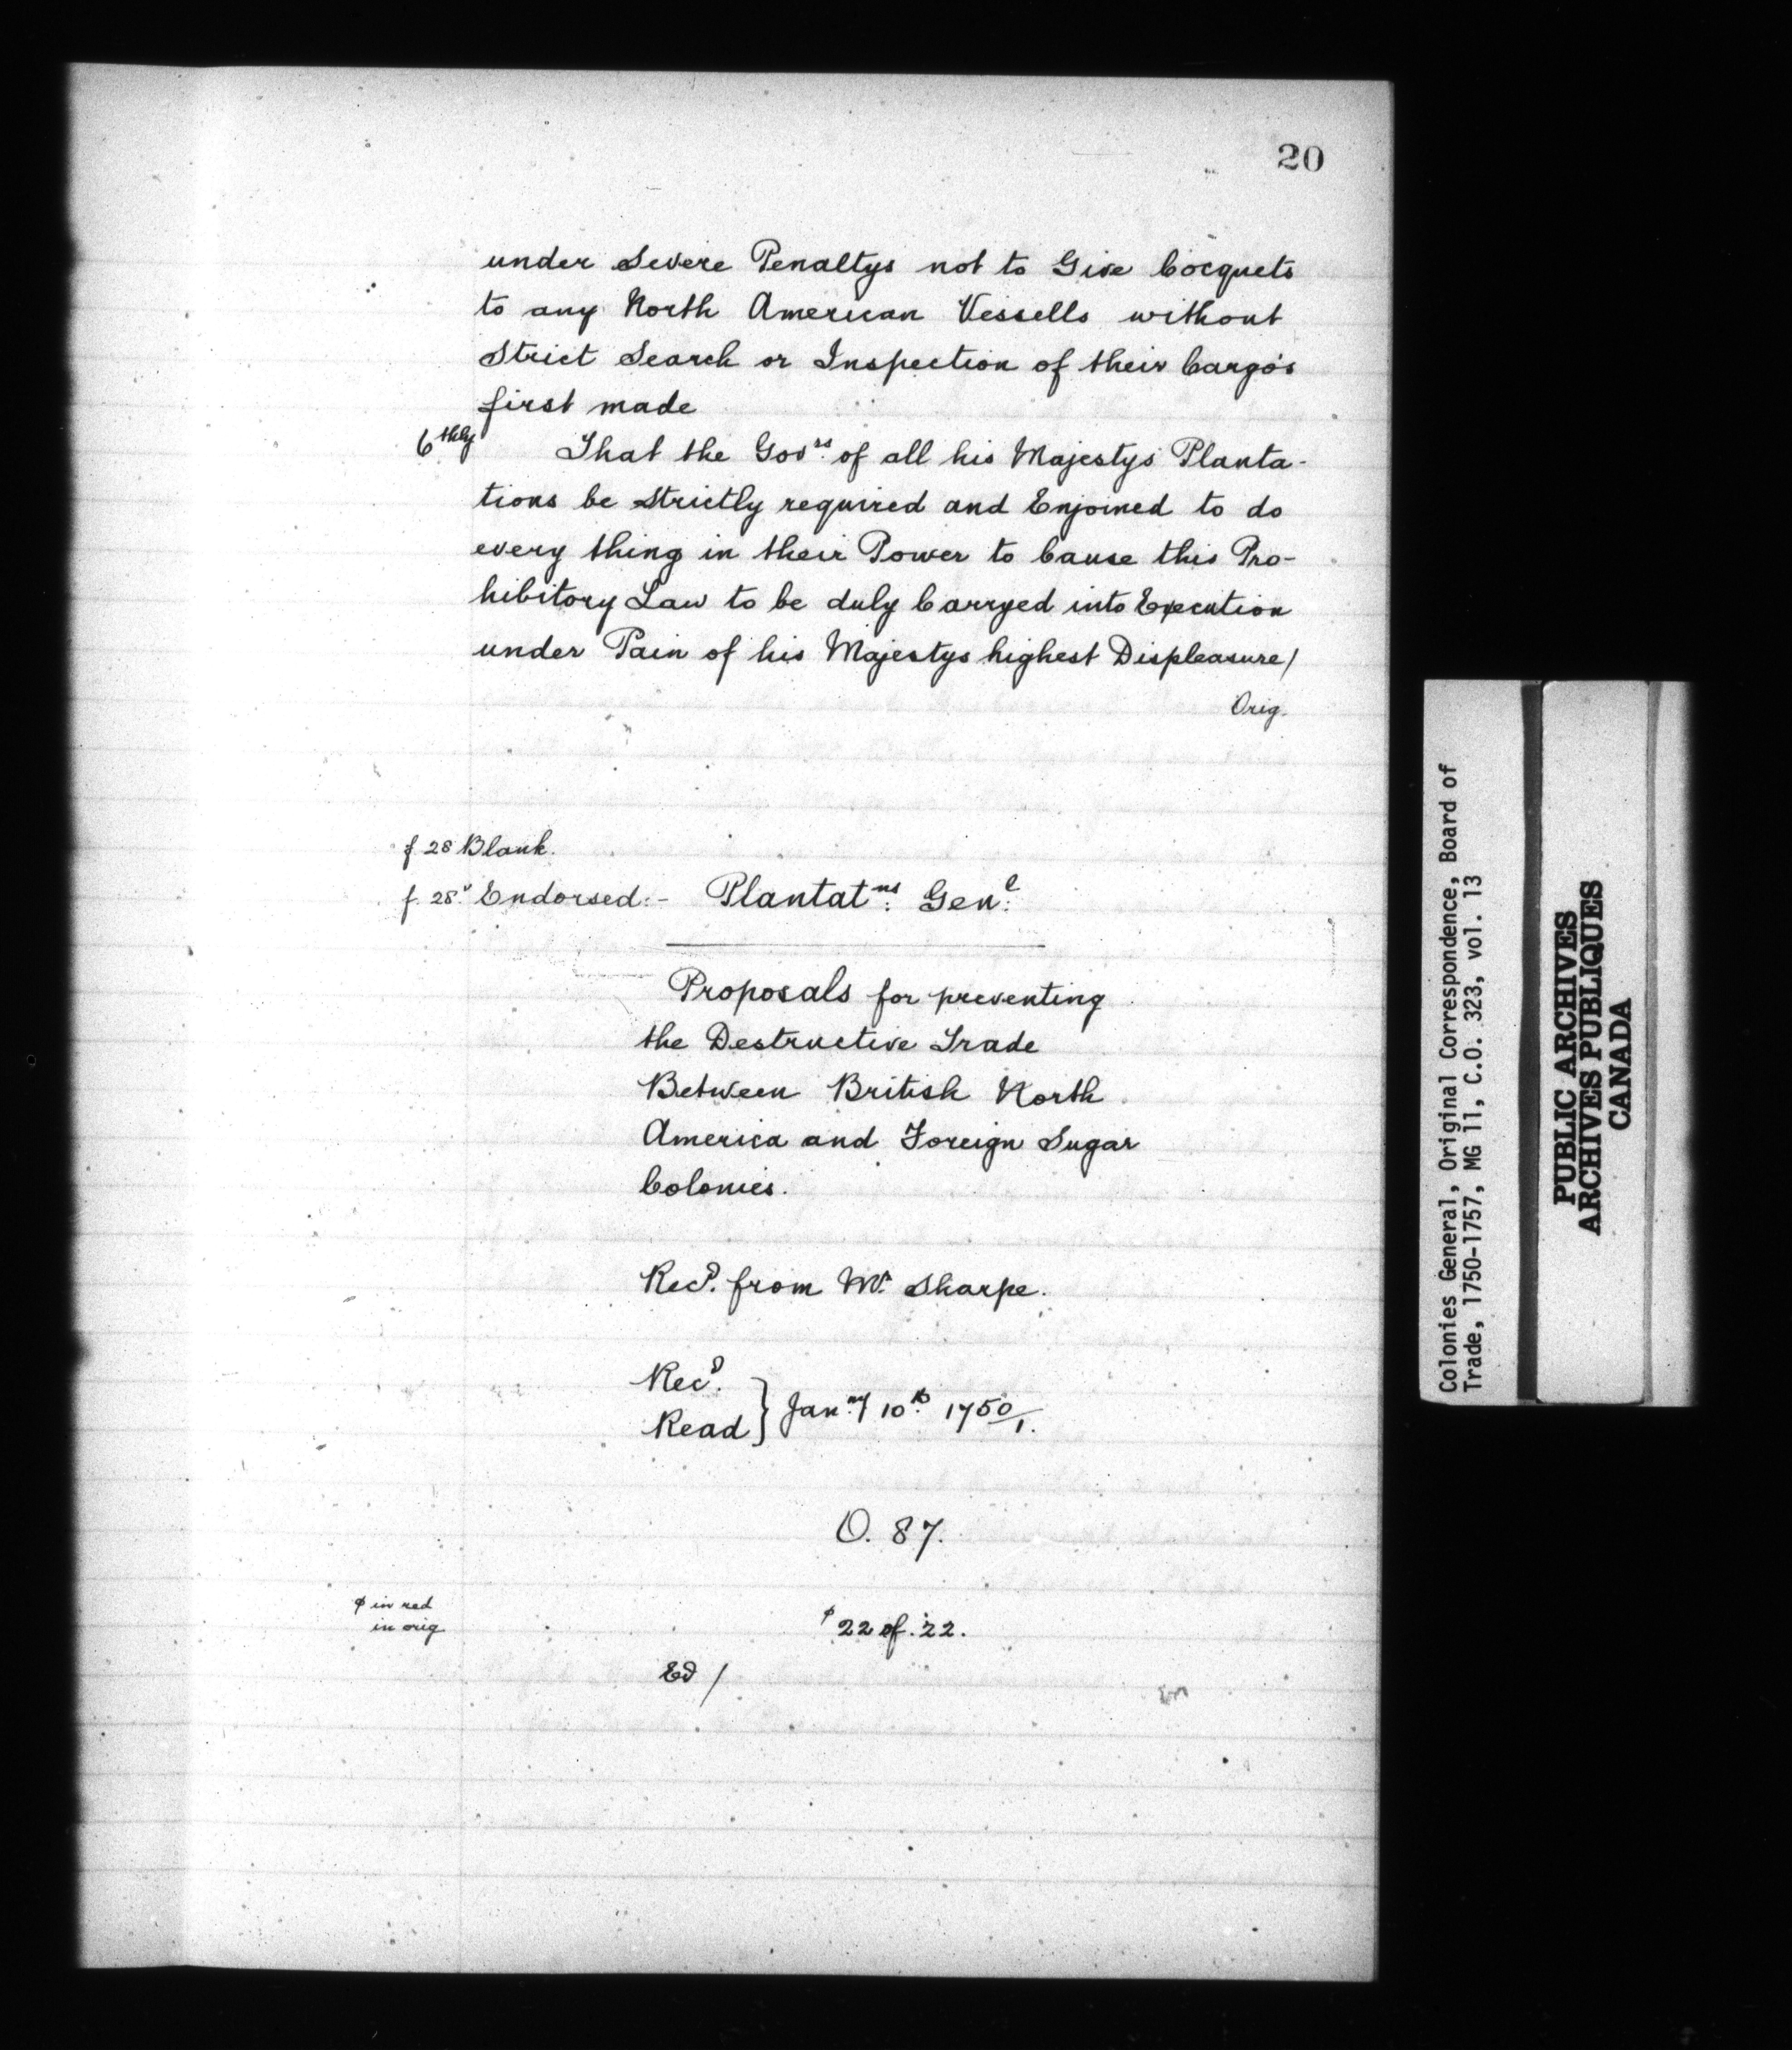 20
under Severe Penaltys not to Give Cocquets
to any North American Vessells without
Strict Search or Inspection of their Cargo's
first made
6thly That the Govrs. of all his Majestys Planta-
tions be Strictly required and Enjoined to do
every thing in their Power to Cause this Pro-
hibitory Law to be duly Carryed into Execution
under Pain of his Majestys highest Displeasure/
Orig.
f 28 Blank.
f. 28v Endorsed:- Plantatns: Genl:
Proposals for preventing
the Destructive Trade
Between British North
America and Foreign Sugar
Colonies.
Recd. from Mr. Sharpe.
Recd.
Read } Janry 10th 1750/1.
O. 87.
φ in red
in orig
φ 22 of. 22.
Ed /
Colonies General, Original Correspondence, Board of
Trade, 1750-1757, MG 11, C.O. 323, vol. 13
PUBLIC ARCHIVES
ARCHIVES PUBLIQUES
CANADA